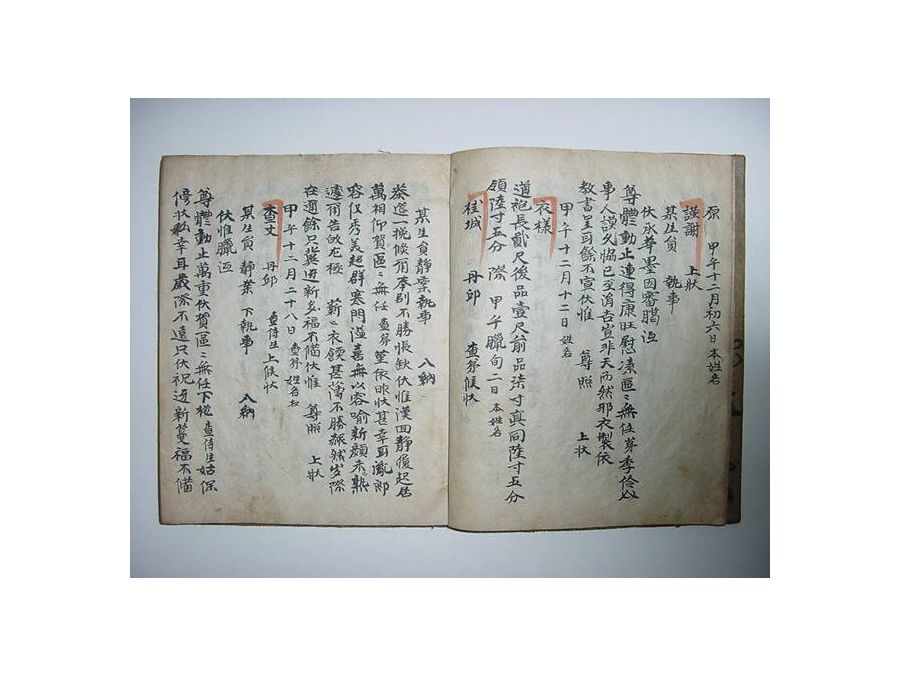 原 甲午十二月初六日 本姓名
謹謝 上狀
某生員 執事
伏承尊墨因審臘沍
尊體動止連得康旺慰溸區〻無任弟季俭奴
事人謀久協已交涓吉豈非天而然耶衣製依
敎書呈耳餘不宣伏惟 尊照 上狀
甲午十二月十二日 姓名
衣樣
道袍長貳尺後品壹尺前品柒寸眞同陸寸五分
領陸寸五分 際 甲午臘旬二日 本姓名
桂城 丹邱 查弟候狀
某生員靜案執事 入納
恭造一挽候爾奉別不勝悵缺伏惟漢回靜履起居
萬相仰賀區〻無任 查弟 堇依昨狀甚幸耳胤郎
容仪秀美超群寒門溢喜無以容喻新顔未熟
遽爾告的尤極 薪〻衣領甚薄不勝赧然岁際
在邇餘只冀迓新多福不備伏惟 尊照 上狀
甲午十二月二十八日 查弟 姓名 拜
查丈 丹邱 查侍生上候狀
某生員 靜案 下執事 入納
伏惟臘沍
尊體動止萬重伏賀區〻無任下忱 查侍生姑保
侍狀私幸耳歲際不遠只伏祝迓新蔓福不備